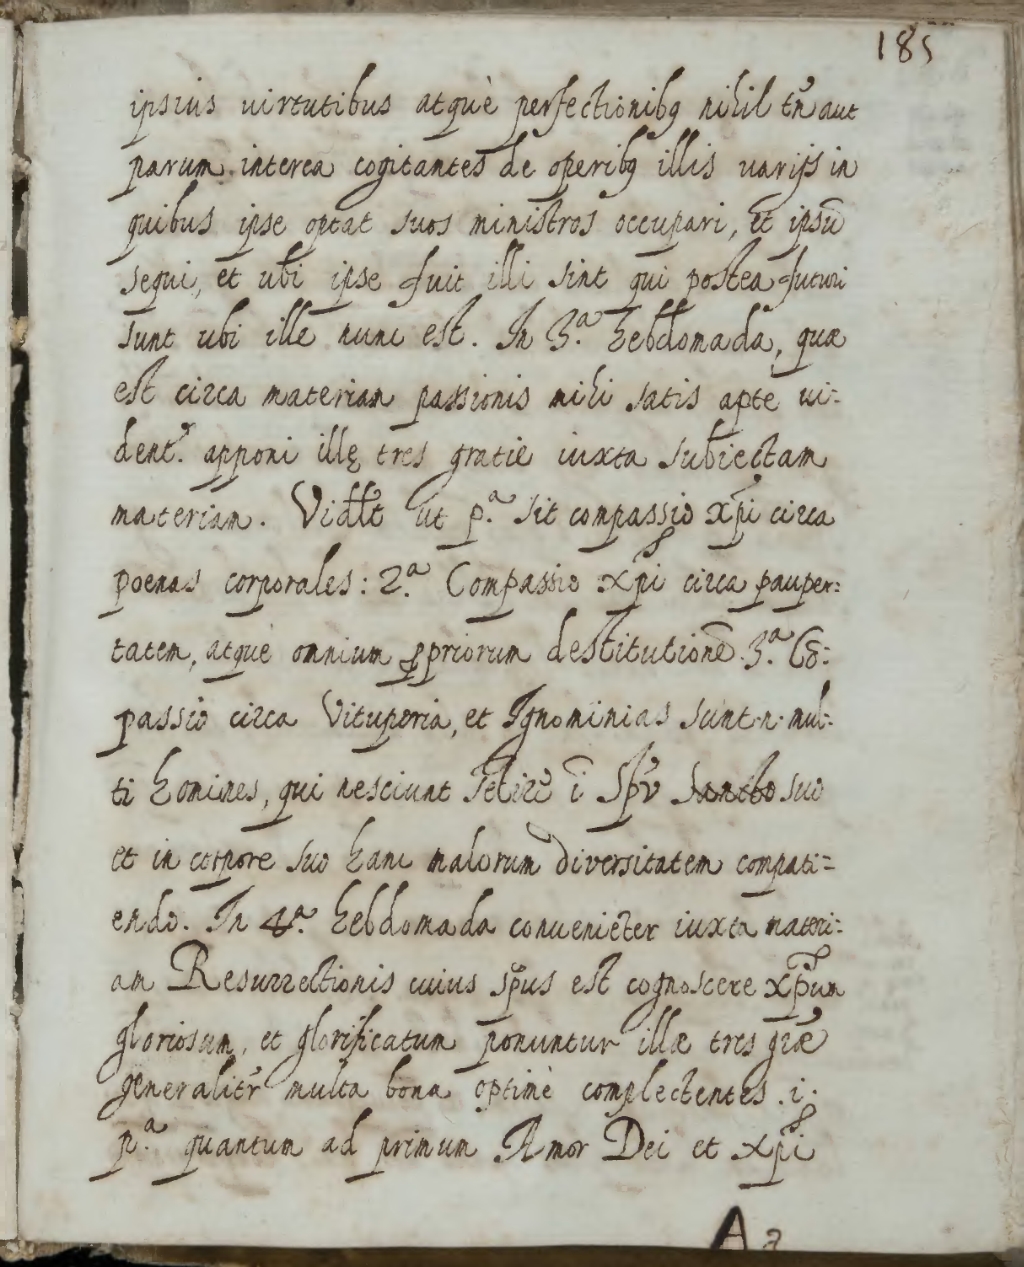 185
ipsius uirtutibus atquè perfectionibꝫ nihil tñ aut
parum interea cogitantes de operibꝫ illis uarijs in
quibus ipse optat suos ministros occupari, et ipsū
sequi, et ubi ipse fuit illi sint qui postea futuri
sunt ubi ille nunc est. In 3.ª hebdomada, quæ
est circa materiam passionis mihi satis apte ui-
dent.ʳ apponi illę tres gratiæ iuxta subiectam
materiam. Vidlt ut p.ª sit compassio xp̄i circa
poenas corporales: 2.ª Compassio xp̄i circa pauper:
tatem, atquè omnium ꝓpriorum destitutionē. 3.ª Cō:
passio circa Vituperia, et Ignominias sunt .n. mul-
ti homines, qui nesciunt i Sp̄u Sancto suo
et in corpore suo hanc malorum diversitatem compati=
endo. In 4.ª hebdomada convenieter iuxta materi:
am Resurrectionis cuius sp̄us est cognoscere xp̄um
gloriosum, et glorificatum ponuntur illæ tres græ
generalitr̄ multa bona optimè complectentes .i.
p.ª quantum ad primum Amor Dei et xp̄i
Aa